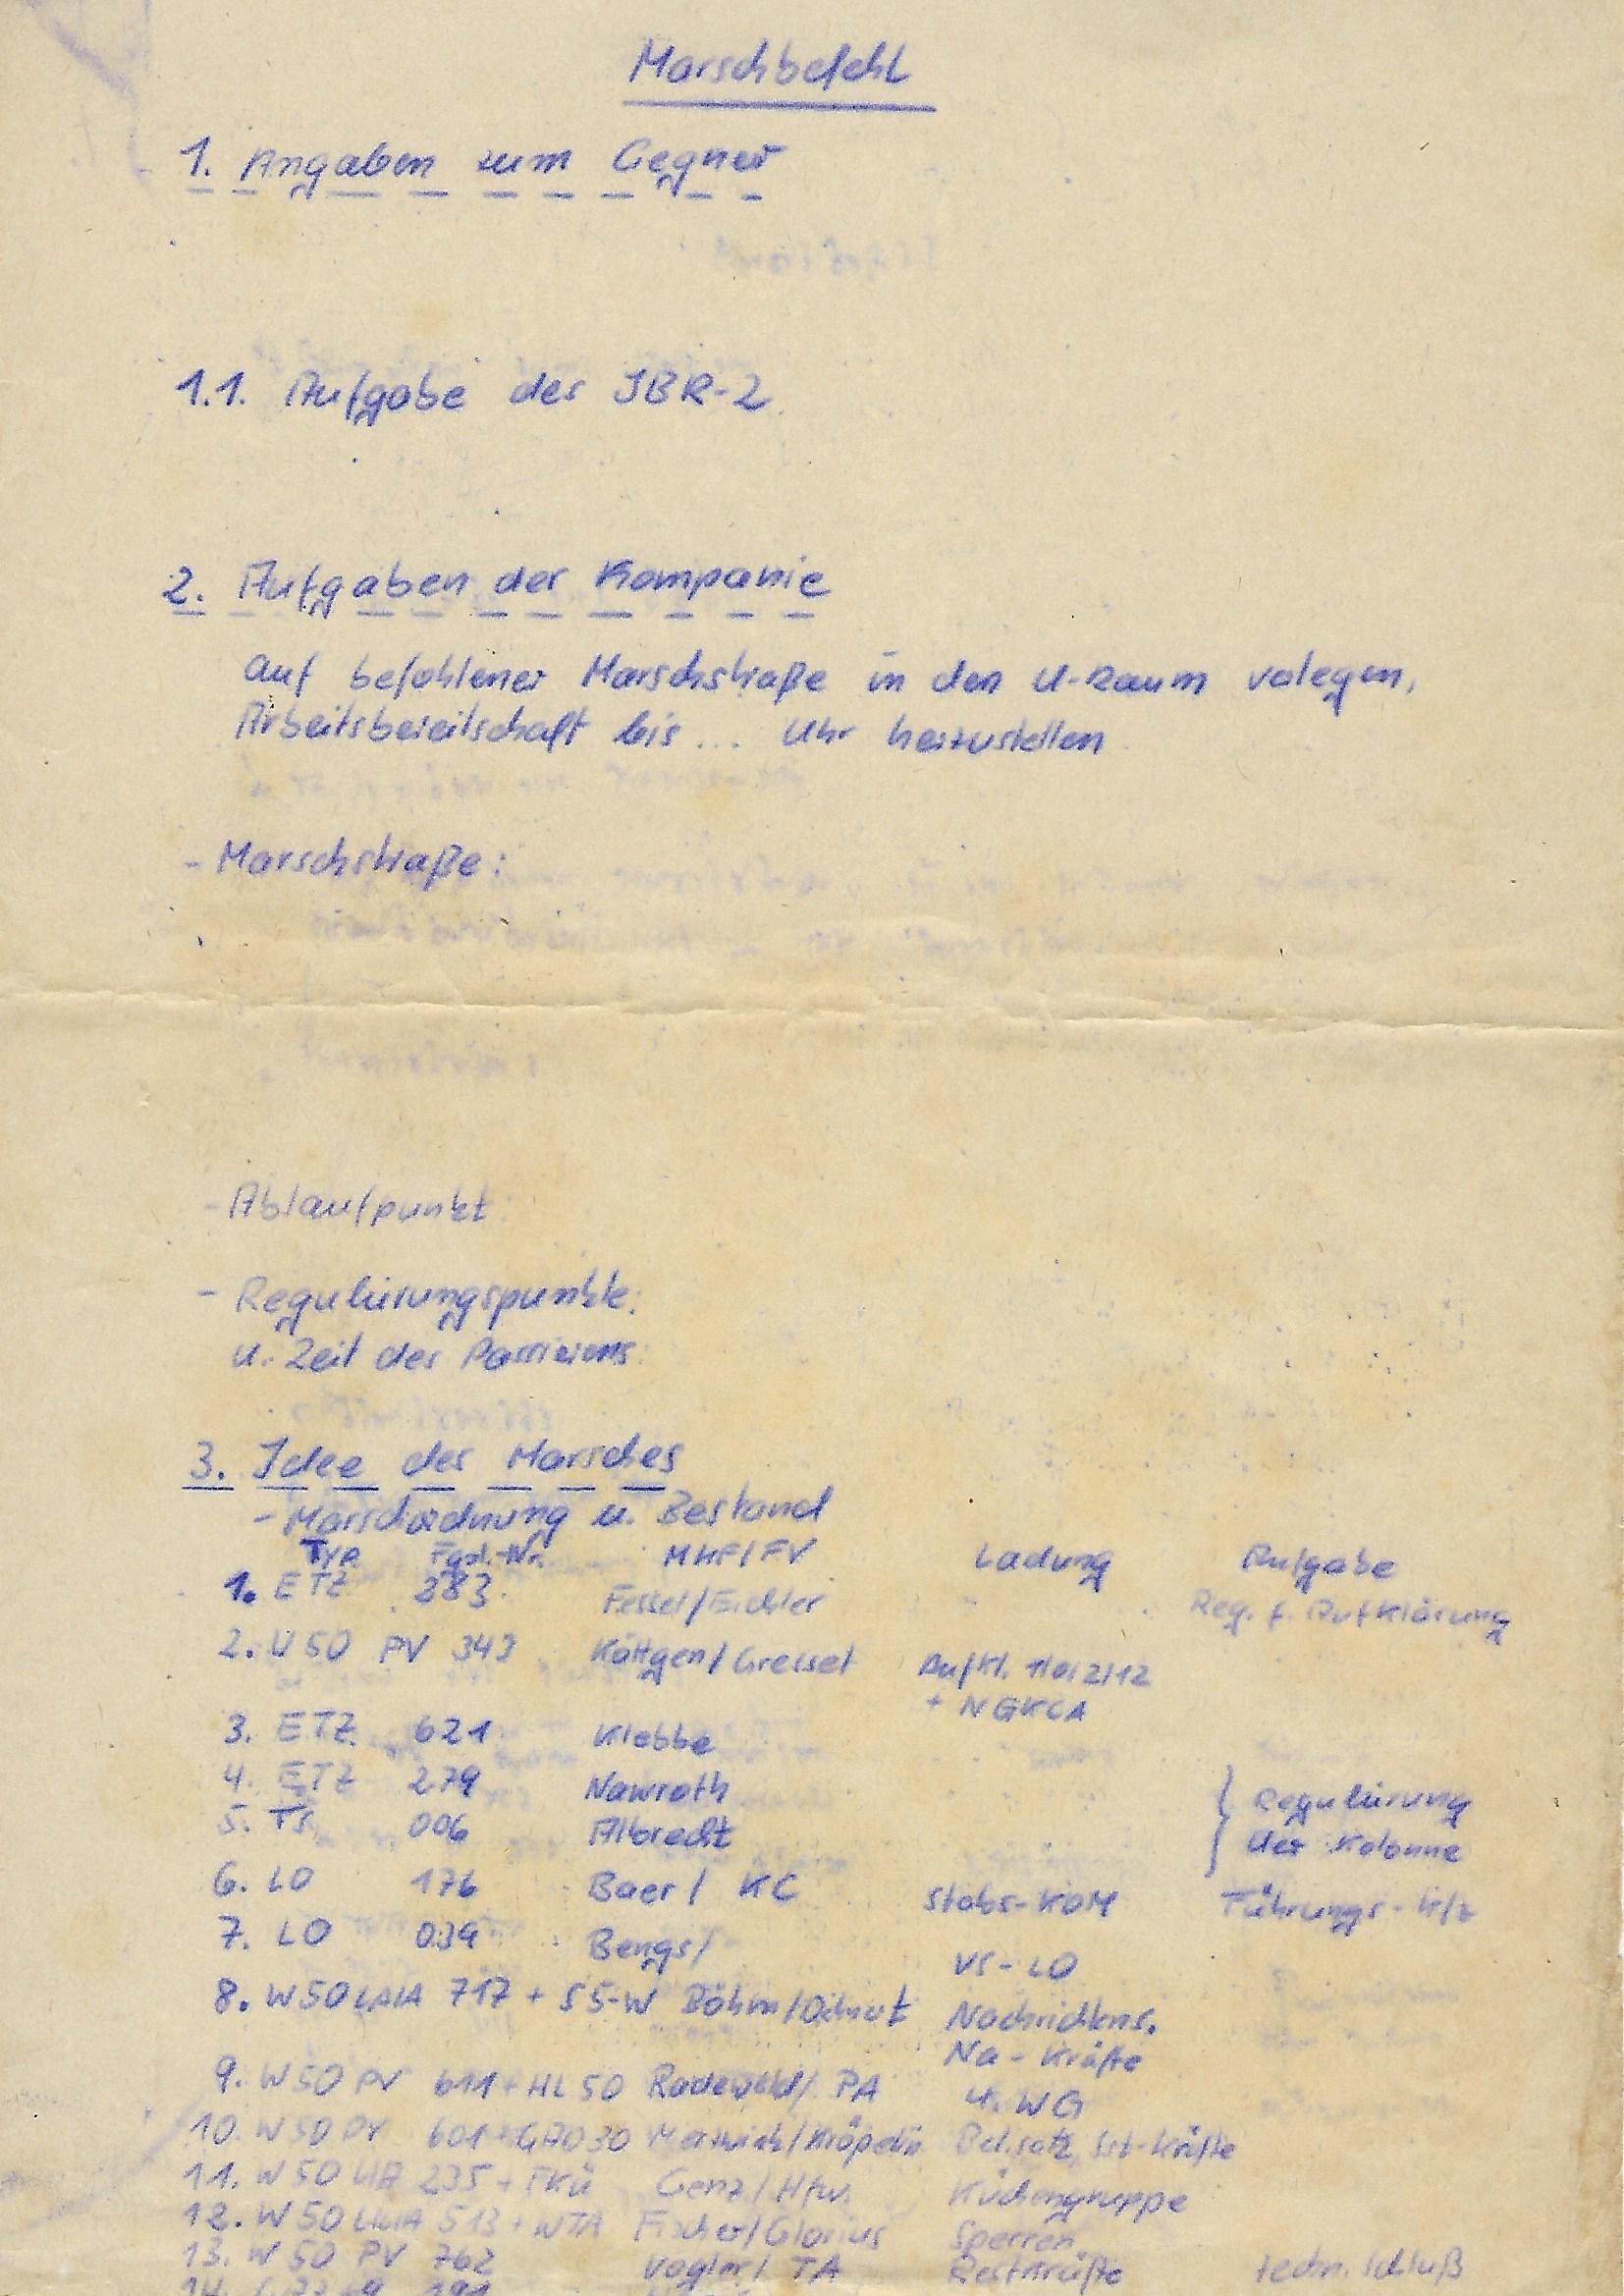 Marschbefehl
1. Angaben zum Gegner
1.1. Aufgabe des IBR-2
2. Aufgaben der Kompanie
auf befohlener Marschstraße in den U-Raum verlegen,
Arbeitsbereitschaft bis ... Uhr herzustellen
- Marschstraße:
- Ablaufpunkt:
- Regulierungspunkte:
u. Zeit des Passierens:
3. Idee des Marsches
- Marschordnung u. Bestand
Typ Fgst.-Nr. MKF/FV Ladung Aufgabe
1. ETZ 283 Fessel/Eichler Reg. f. Aufklärung
2. W50 PV 343 Köttgen/Gressel Aufkl. 1/0/2/12
+ NGKCA
3. ETZ 621 Klebbe
4. ETZ 279 Nawroth } Regulierung
5. TS 006 Albrecht der Kolonne
6. LO 176 Baer / KC Stabs-KOM Führungs-Kfz
7. LO 039 Bengs/ VS-LO
8. W50 LA/A 717 + S5-W Böhm/ Nachrichtens.
Na-Kräfte
9. W50 PV 611 + HL 50 / PA u. WG
10. W50 601 + 30 /Kröpelin -Kräfte
11. W50 LA 235 + FKü Genz/Hfw. Küchengruppe
12. W50 LA/A 513 + WTA Fischer/Glorius Sperren
13. W50 PV 762 Vogler/ TA Restkräfte techn. Schluß
14. 191